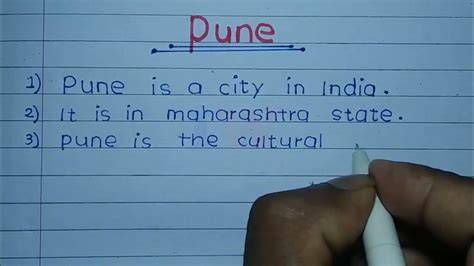 Pune
1) Pune is a city in India.
2) It is in maharashtra state.
3) pune is the cultural